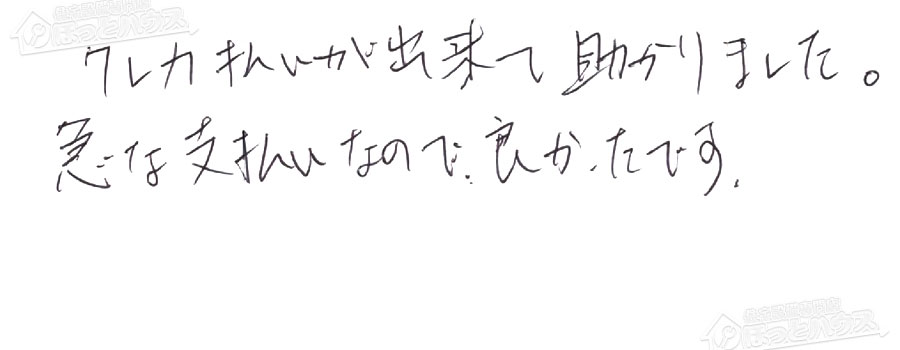 ほっとハウス
クレカ払いが出来て助かりました。
急な支払いなので、良かったです。
ほっとハウス